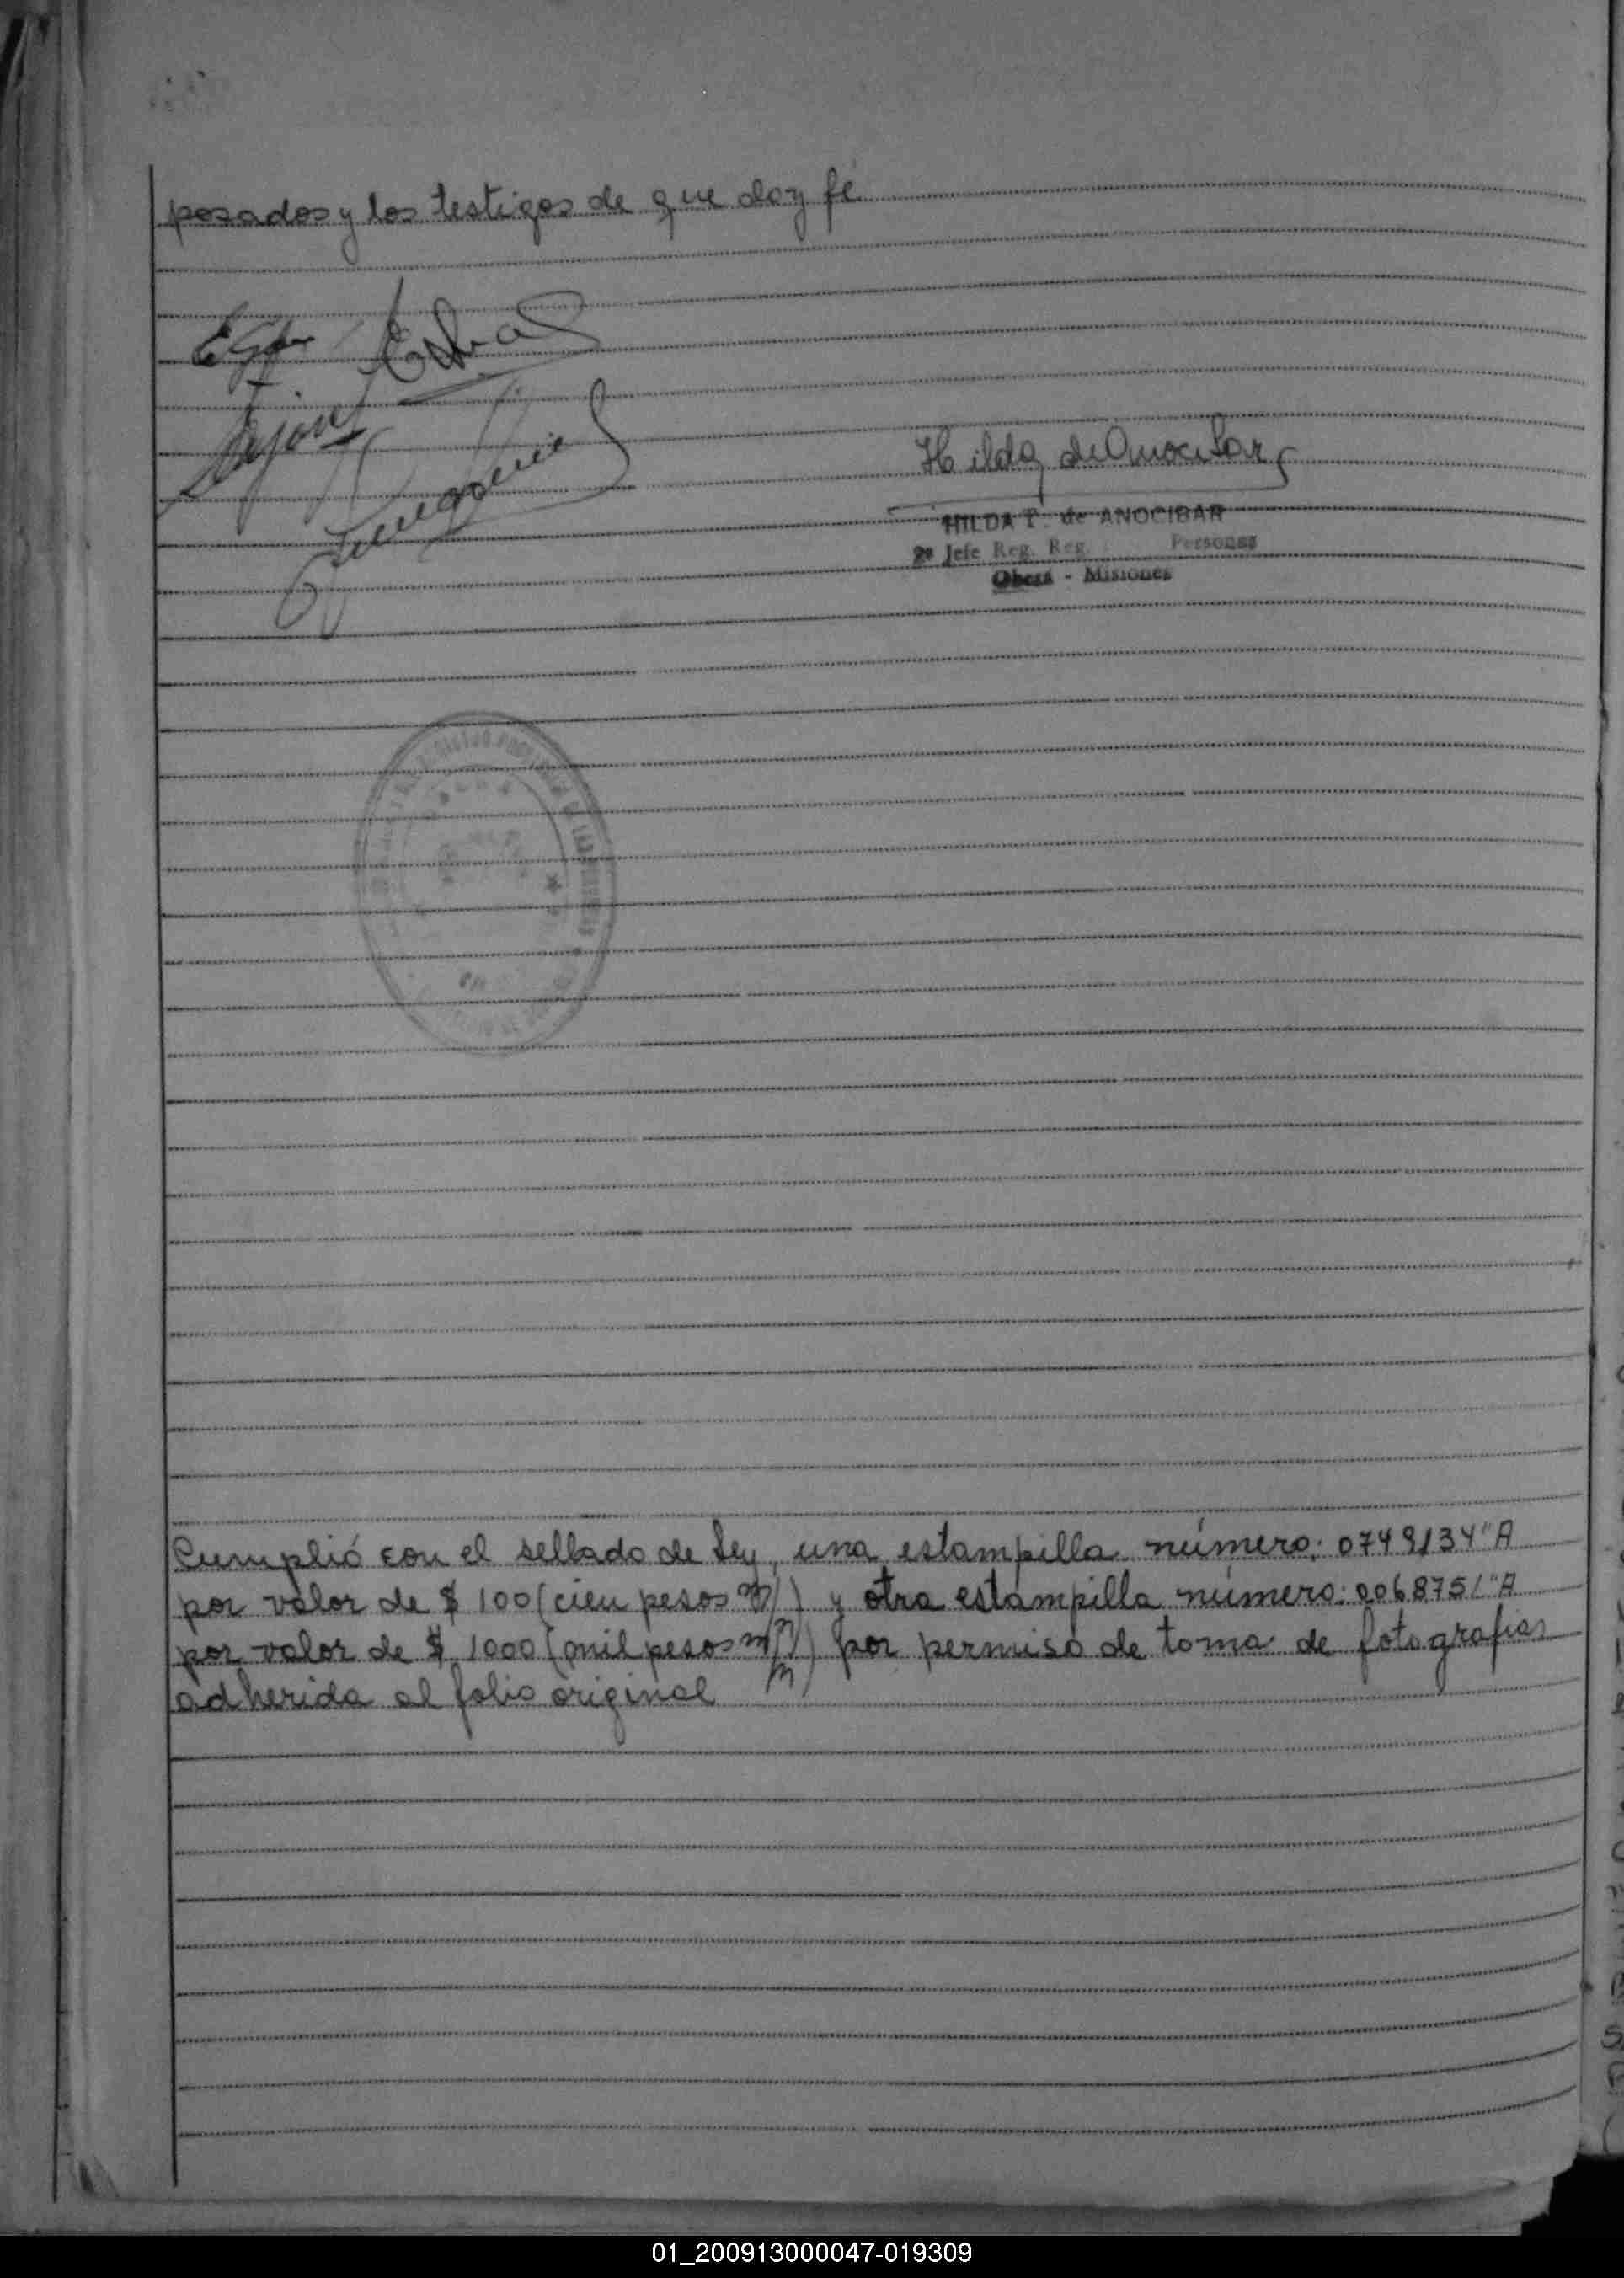 posados y los testigos de que doy fé
Hilda de Anocibar
HILDA T. de ANOCIBAR
2º Jefe Reg. Reg. Personas
Oberá - Misiones
Cumplió con el sellado de Ley, una estampilla número: 0749134"A
por valor de $ 100 (cien pesos m/n) y otra estampilla número: 0068751"A
por valor de $ 1000 (mil pesos m/n) por permiso de toma de fotografias
adherida al folio original
01_200913000047-019309